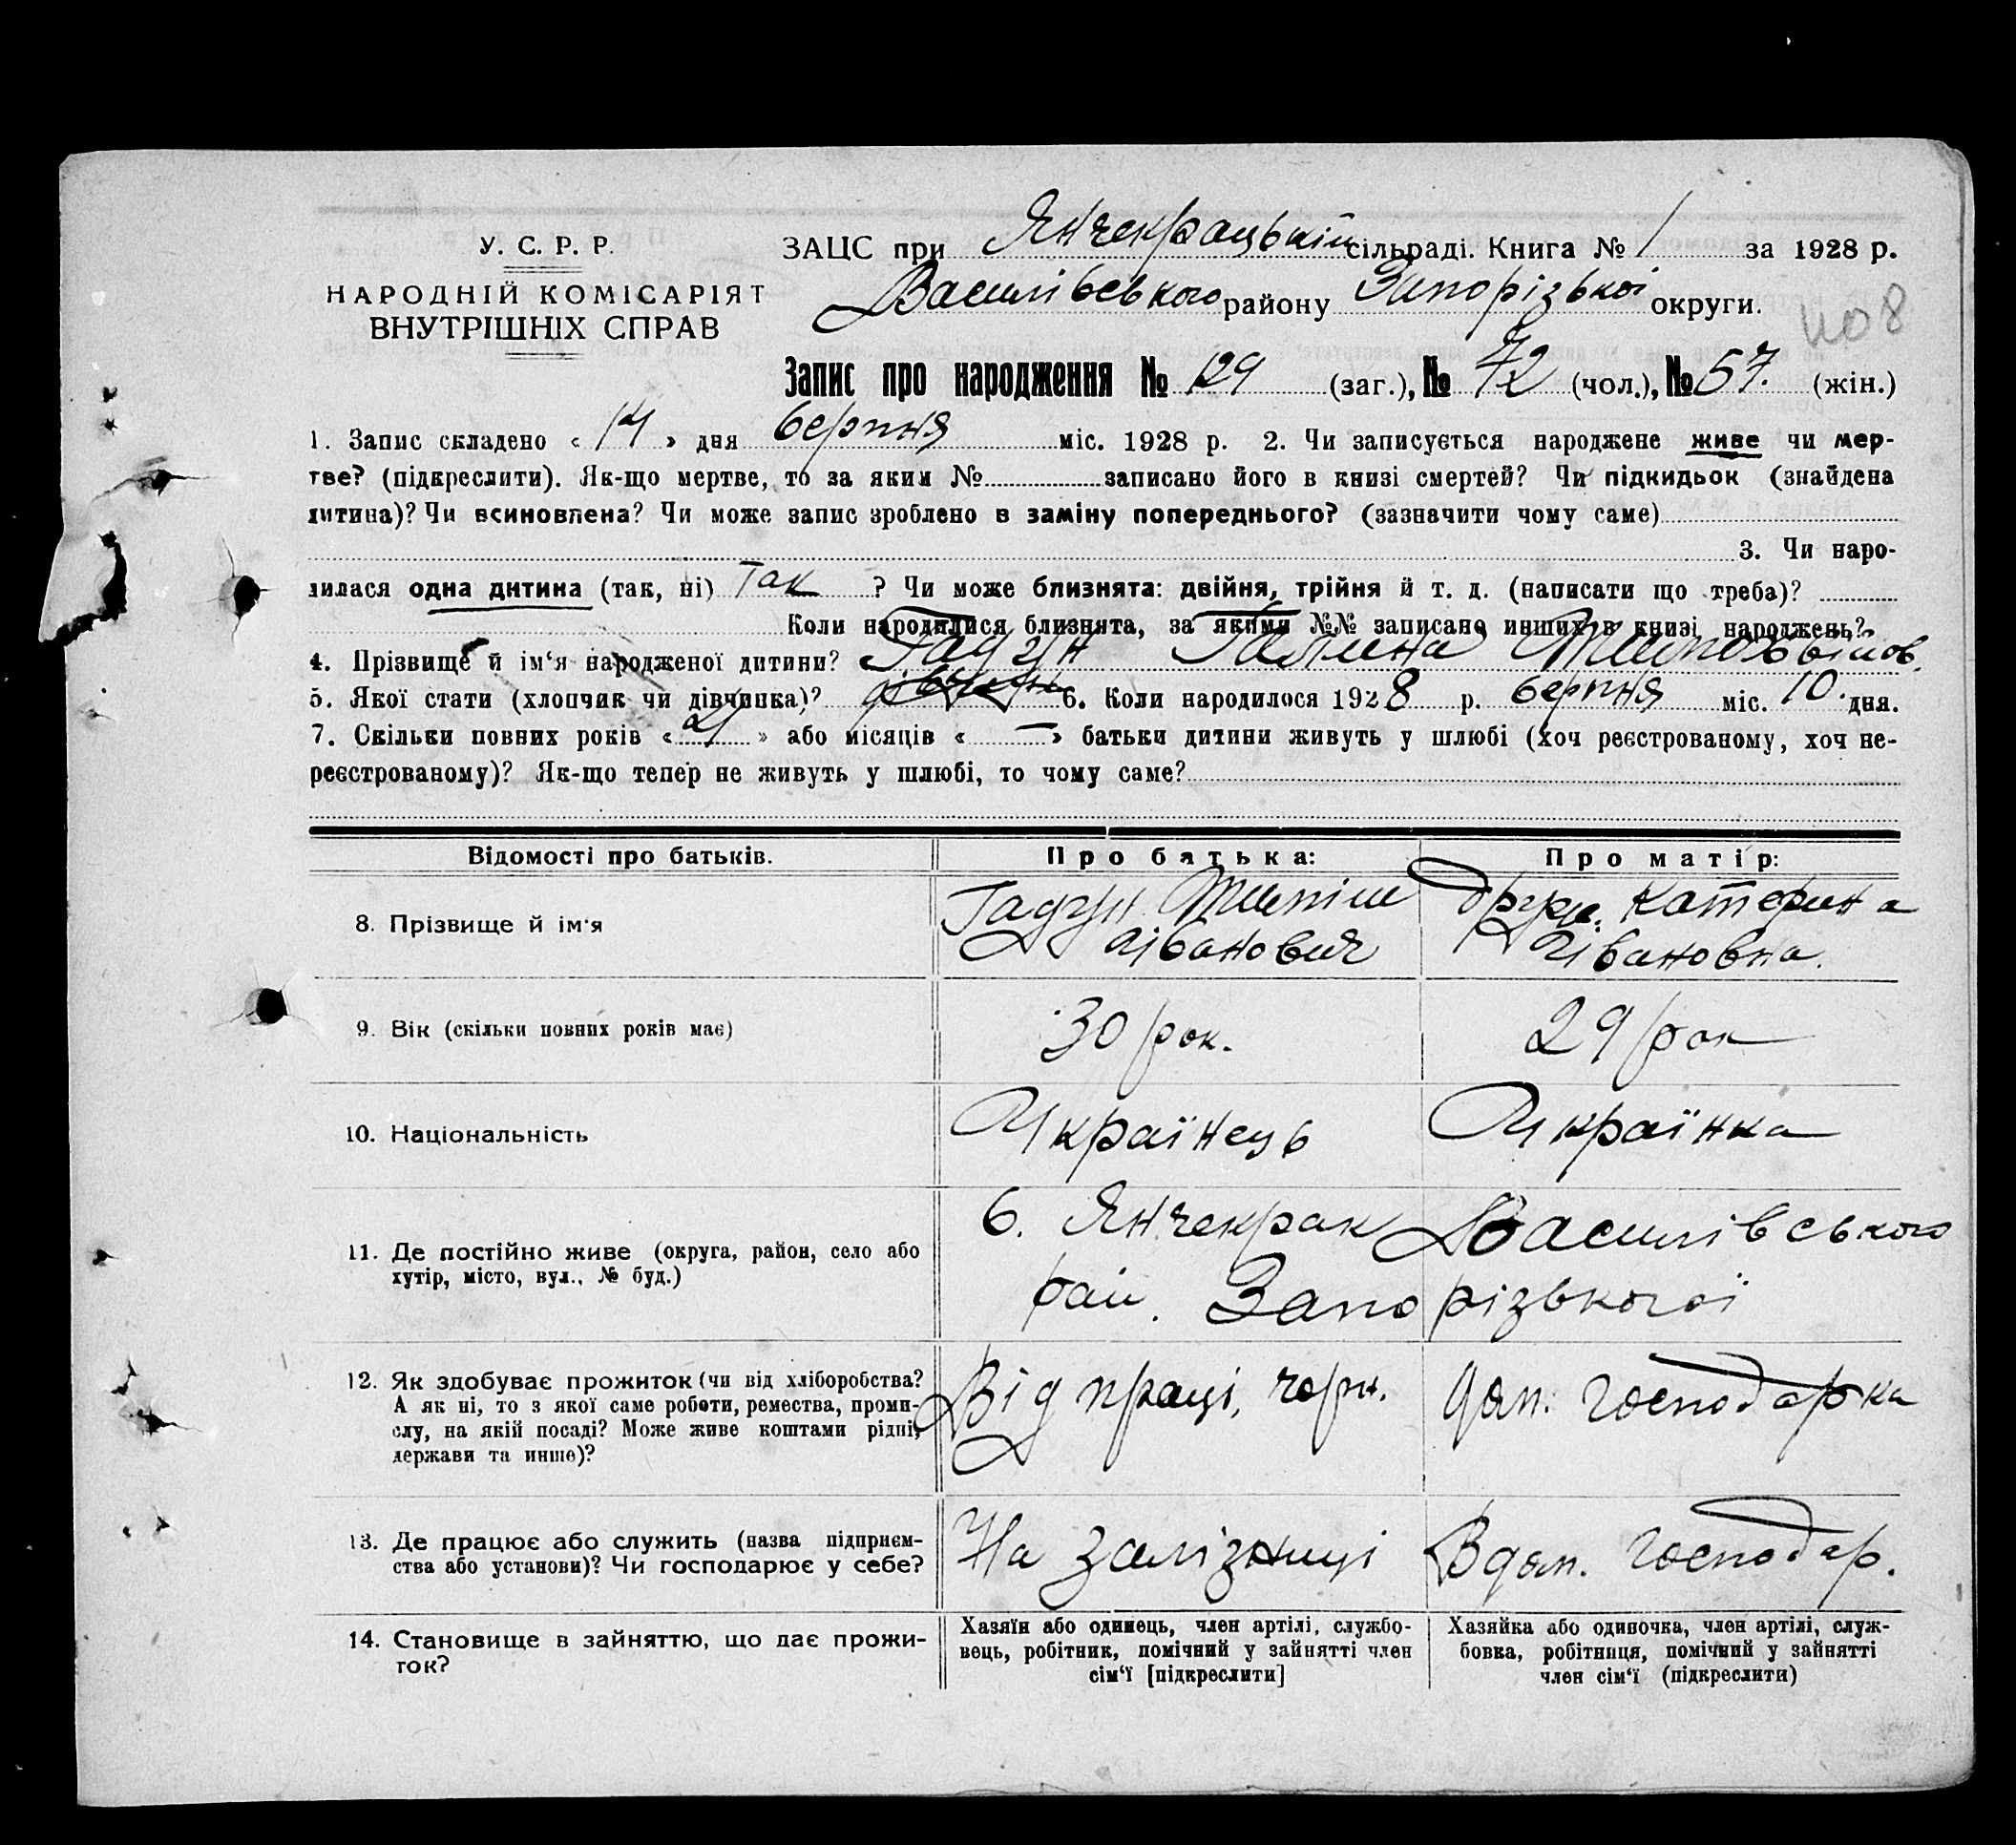 У. С. Р. Р.
НАРОДНІЙ КОМІСАРІЯТ
ВНУТРІШНІХ СПРАВ
ЗАЦС при Янчекрацькій сільраді. Книга № 1 за 1928 р.
Василівського району Запорізької округи.
Запис про народження № 129 (заг.), № 72 (чол.), № 57. (жін.)
1. Запис складено « 14 » дня берпня міс. 1928 р. 2. Чи записується народжене живе чи мер-
тве? (підкреслити). Як-що мертве, то за яким № записано його в книзі смертей? Чи підкидьок (знайдена
дитина)? Чи всиновлена? Чи може запис зроблено в заміну попереднього? (зазначити чому саме)
3. Чи наро-
дилася одна дитина (так, ні) Так ? Чи може близнята: двійня, трійня й т. д. (написати що треба)?
Коли народилися близнята, за якими №№ записано инших в книзі народжень?
4. Прізвище й ім'я народженої дитини? Гадзун Галина
5. Якої стати (хлопчик чи дівчинка)? 6. Коли народилося 1928 р. берпня міс. 10. дня.
7. Скільки повних років « 4 » або місяців « — » батьки дитини живуть у шлюбі (хоч реєстрованому, хоч не-
реєстрованому)? Як-що тепер не живуть у шлюбі, то чому саме?
Відомості про батьків. Про батька: Про матір:
8. Прізвище й ім'я
Катерина
Івановна.
Іванович
9. Вік (скільки повних років має) 30 рок. 29 рок
10. Національність Українець Українка
11. Де постійно живе (округа, район, село або
хутір, місто, вул., № буд.)
с. Янчекрак Василівського
рай. Запорізької
12. Як здобуває прожиток (чи від хліборобства?
А як ні, то з якої саме роботи, ремества, проми-
слу, на якій посаді? Може живе коштами рідні,
держави та инше)?
Від праці, чорн. дом. господарка
13. Де працює або служить (назва підприєм-
ства або установи)? Чи господарює у себе?
На залізниці В дом. господар.
14. Становище в зайняттю, що дає прожи-
ток?
Хазяїн або одинець, член артілі, службо-
вець, робітник, помічний у зайнятті член
сім'ї [підкреслити]
Хазяйка або одиночка, член артілі, служ-
бовка, робітниця, помічний у зайнятті
член сім'ї (підкреслити)